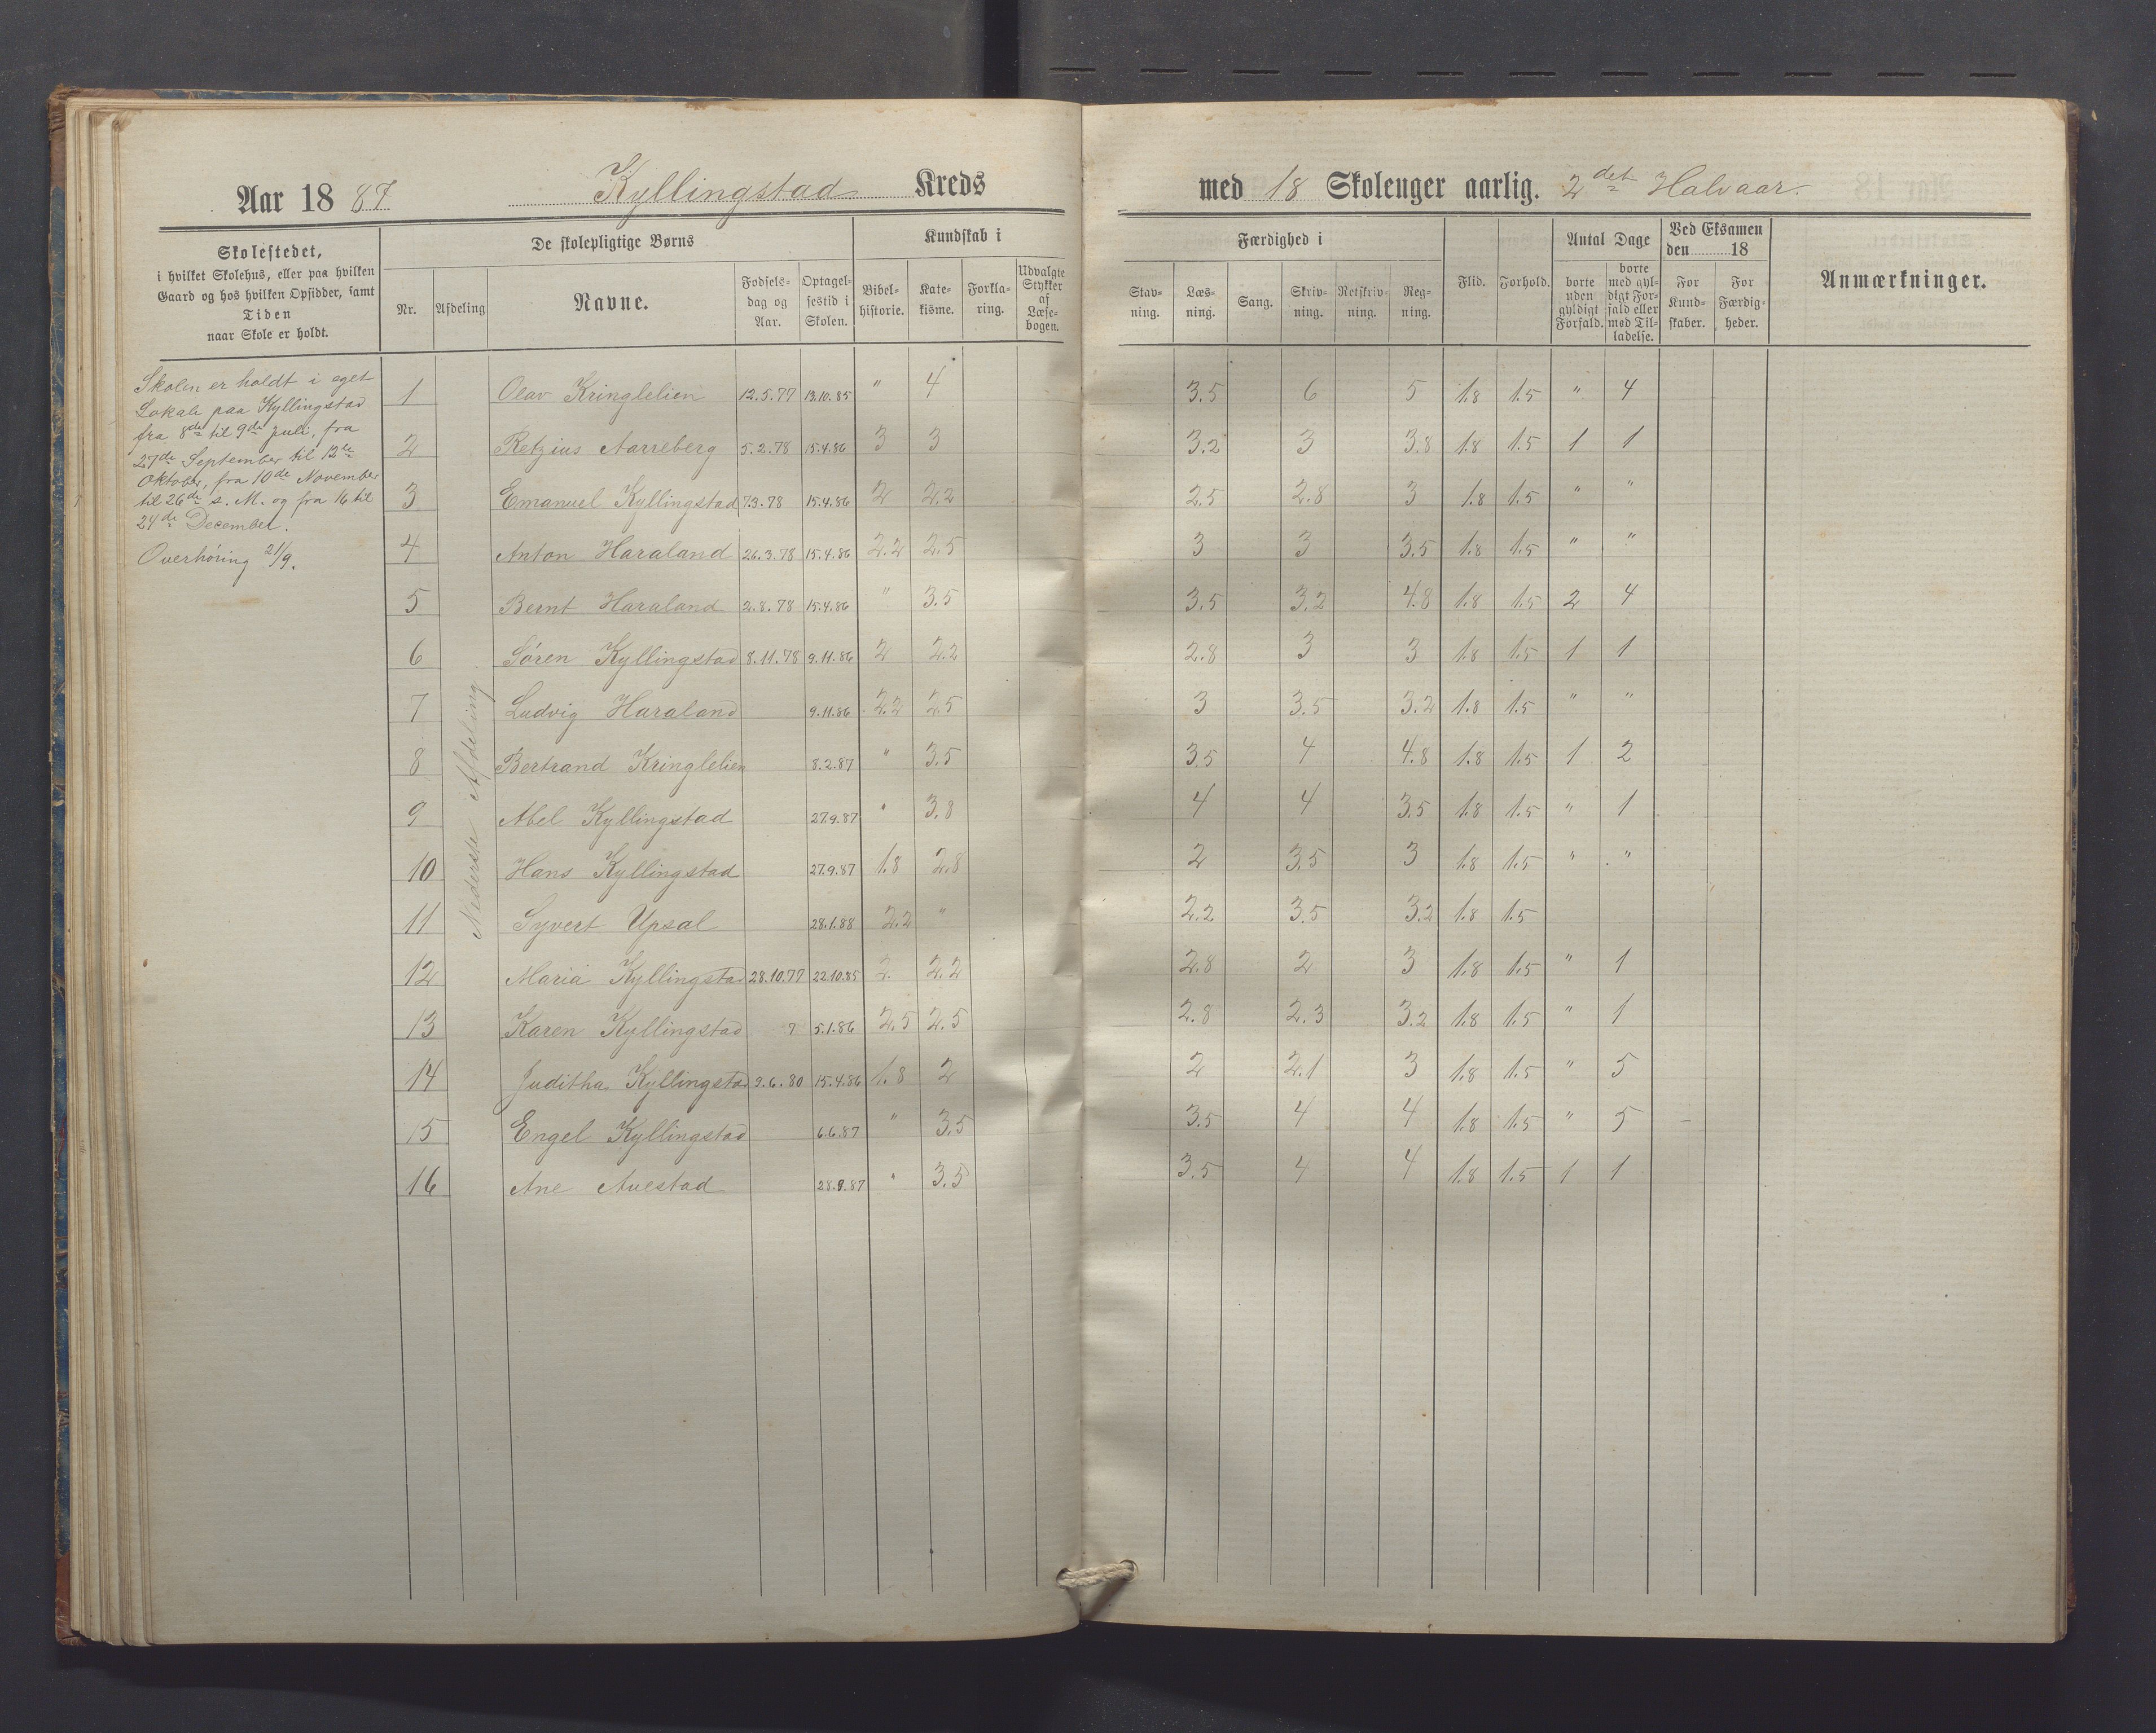 Aar 1887 Kyllingstad Kreds med 18 Skoleuger aarlig. 2det Halvaar.
Skolestedet,
i hvilket Skolehus, eller paa hvilken
Gaard og hos hvilken Opsidder, samt
Tiden
naar Skole er holdt.
De skolepligtige Børns
Nr. Afdeling Navne. Fødsels-dag og Aar. Optagel-sestid i Skolen.
Kundskab i
Bibel-historie. Kate-kisme. Forkla-ring. Udvalgte Stykker af Læse-bogen.
Færdighed i
Stav-ning. Læs-ning. Sang. Skriv-ning. Retskriv-ning. Reg-ning.
Flid. Forhold.
Antal Dage
borte uden gyldigt Forfald. borte med gyl-digt For-fald eller med Til-ladelse.
Ved Eksamen
den 18
For Kund-skaber. For Færdig-heder.
Anmærkninger.
Skolen er holdt i eget
Lokale paa Kyllingstad
fra 8de til 9de Juli, fra
27de September til 12te
Oktober, fra 10de November
til 26de s. M. og fra 16 til
24de December.
Overhøring 21/9.
Nederste Afdeling
1 Olav Kringlelien 12.5.77 13.10.85 " 4 3.5 6 5 1.8 1.5 " 4
2 Retzius Aarreberg 5.2.78 15.4.86 3 3 3.2 3 3.8 1.8 1.5 1 1
3 Emanuel Kyllingstad 7.3.78 15.4.86 2 2.2 2.5 2.8 3 1.8 1.5 " "
4 Anton Haraland 26.3.78 15.4.86 2.2 2.5 3 3 3.5 1.8 1.5 " "
5 Bernt Haraland 2.8.78 15.4.86 " 3.5 3.5 3.2 4.8 1.8 1.5 2 4
6 Søren Kyllingstad 8.11.78 9.11.86 2 2.2 2.8 3 3 1.8 1.5 1 1
7 Ludvig Haraland 9.11.86 2.2 2.5 3 3.5 3.2 1.8 1.5 " "
8 Bertrand Kringlelien 8.2.87 " 3.5 3.5 4 4.8 1.8 1.5 1 2
9 Abel Kyllingstad 27.9.87 " 3.8 4 4 3.5 1.8 1.5 " 1
10 Hans Kyllingstad 27.9.87 1.8 2.8 2 3.5 3 1.8 1.5 " "
11 Syvert Upsal 28.1.88 2.2 " 2.2 3.5 3.2 1.8 1.5
12 Maria Kyllingstad 28.10.77 22.10.85 2. 2.2 2.8 2 3 1.8 1.5 " 1
13 Karen Kyllingstad 7 5.1.86 2.5 2.5 2.8 2.3 3.2 1.8 1.5 " 1
14 Juditha Kyllingstad 9.6.80 15.4.86 1.8 2 2 2.1 3 1.8 1.5 " 5
15 Engel Kyllingstad 6.6.87 " 3.5 3.5 4 4 1.8 1.5 " 5
16 Ane Auestad 28.9.87 " 3.5 3.5 4 4 1.8 1.5 1 1